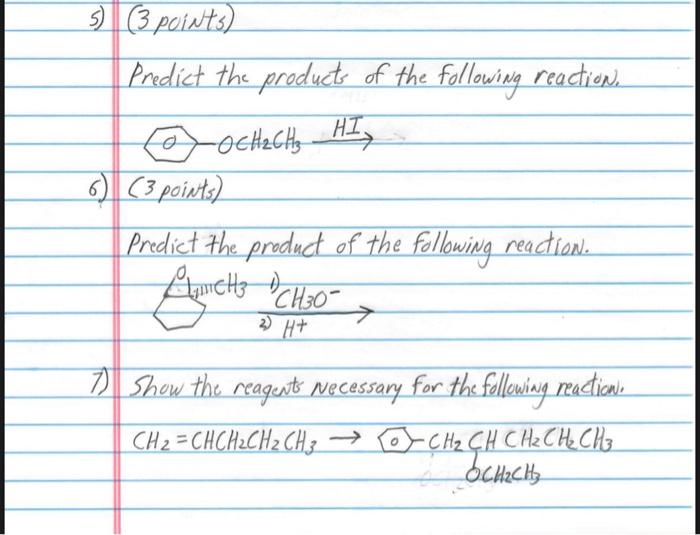 5) (3 points)
Predict the products of the following reaction.
O -OCH2CH3 HI
6) (3 points)
Predict the product of the following reaction.
O CH3 1) CH3O-
2) H+
7) Show the reagents necessary for the following reaction.
CH2=CHCH2CH2CH3 → O -CH2CHCH2CH2CH3
OCH2CH3